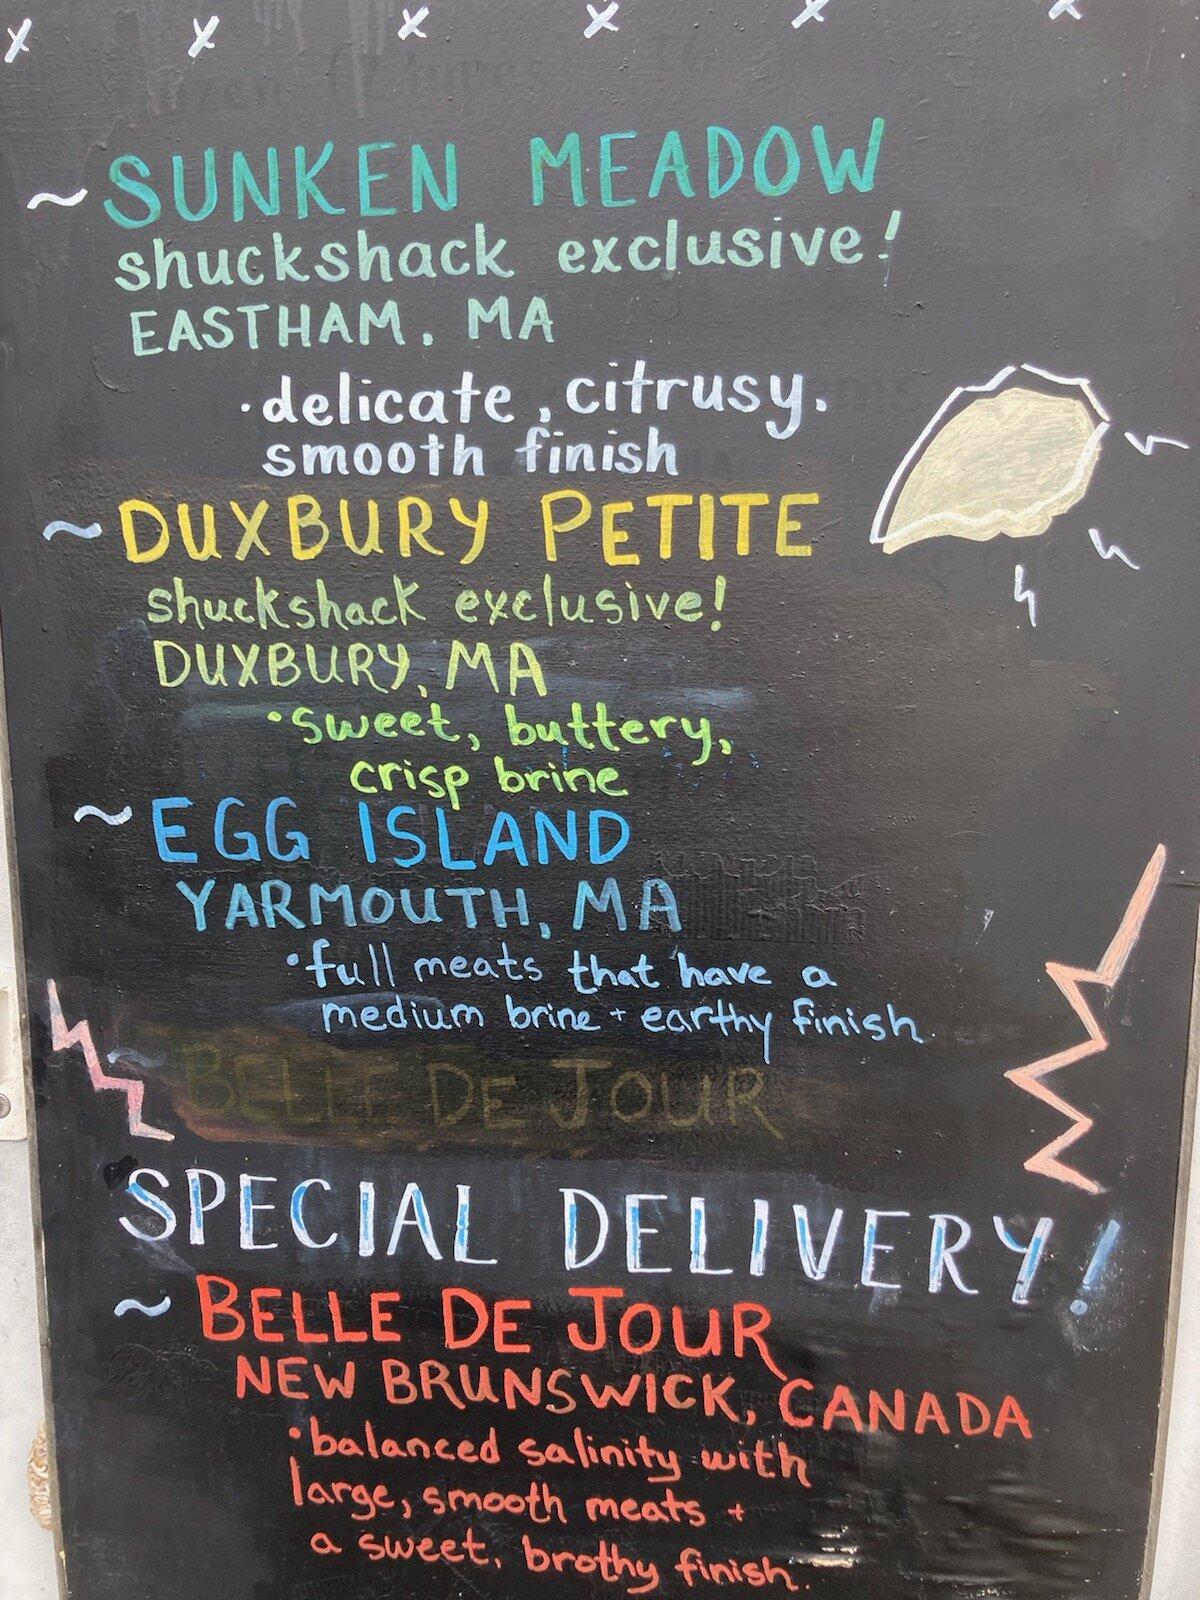 ~ SUNKEN MEADOW
shuckshack exclusive!
EASTHAM, MA
· delicate, citrusy,
smooth finish
~ DUXBURY PETITE
shuckshack exclusive!
DUXBURY, MA
· sweet, buttery,
crisp brine
~ EGG ISLAND
YARMOUTH, MA
· full meats that have a
medium brine + earthy finish.
BELLE DE JOUR
SPECIAL DELIVERY!
~ BELLE DE JOUR
NEW BRUNSWICK, CANADA
· balanced salinity with
large, smooth meats +
a sweet, brothy finish.